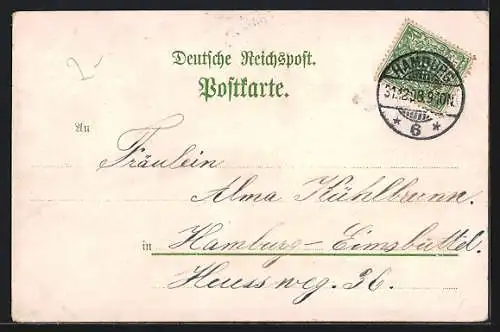 2
Deutsche Reichspost.
Postkarte.
HAMBURG
31.12.98.8-9.10N.
* 6 *
An
Fräulein
Alma Kühlbrunn.
in Hamburg-Eimsbüttel.
Heussweg. 36.